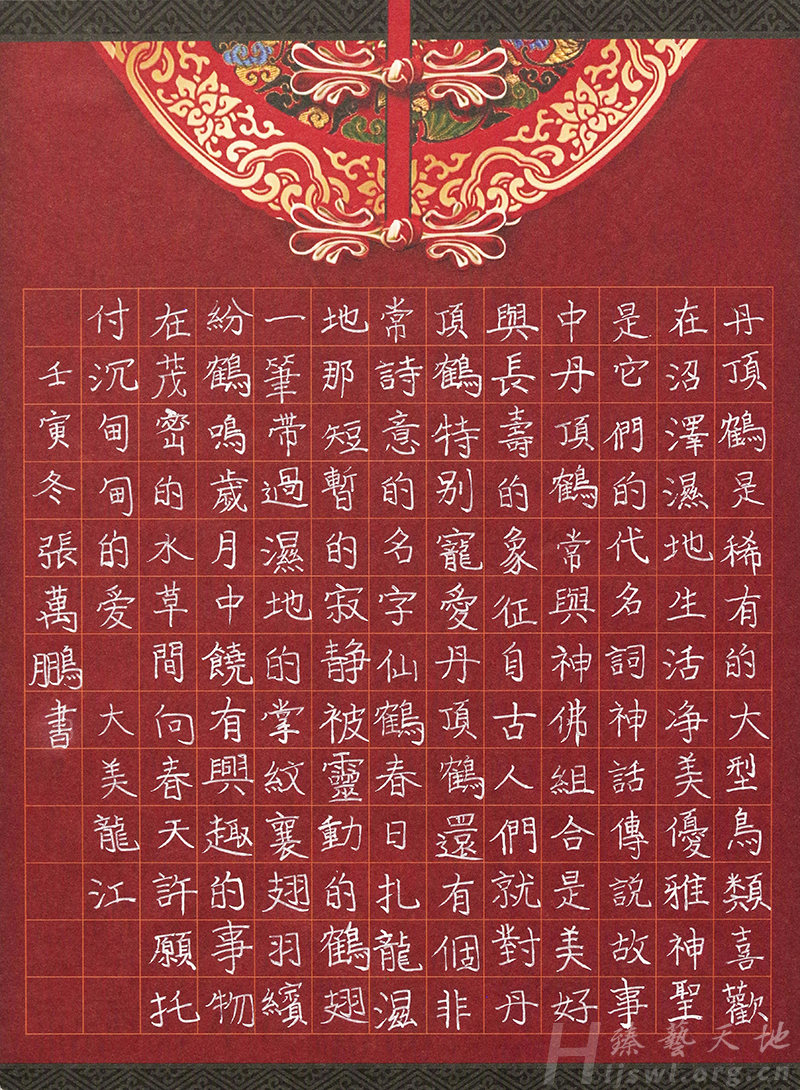 丹頂鶴是稀有的大型鳥類喜歡
在沼澤濕地生活净美優雅神聖
是它們的代名詞神話傳說故事
中丹頂鶴常與神佛組合是美好
與長壽的象征自古人們就對丹
頂鶴特别寵愛丹頂鶴還有個非
常詩意的名字仙鶴春日扎龍濕
地那短暫的寂静被靈動的鶴翅
一筆带過濕地的掌紋襄翅羽繽
紛鶴鳴歲月中饒有興趣的事物
在茂密的水草間向春天許願托
付沉甸甸的爱 大美龍江
壬寅冬張萬鵬書
臻藝天地
Hliswl.org.cn